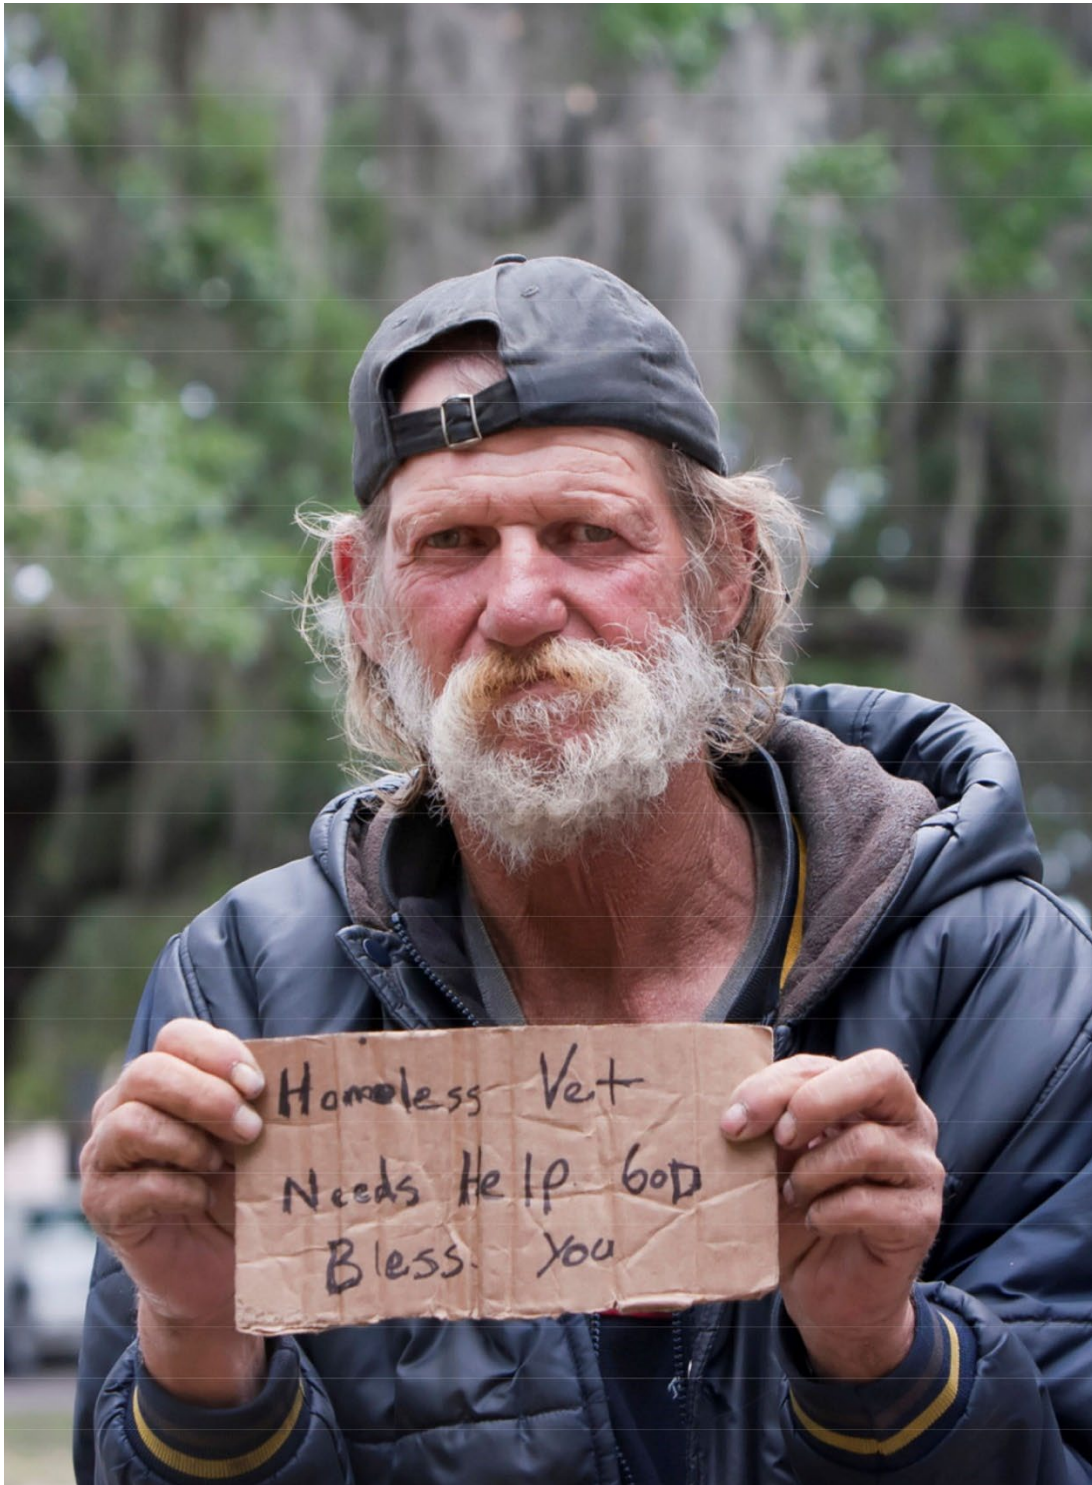 Homeless Vet
Needs Help. GOD
Bless. You